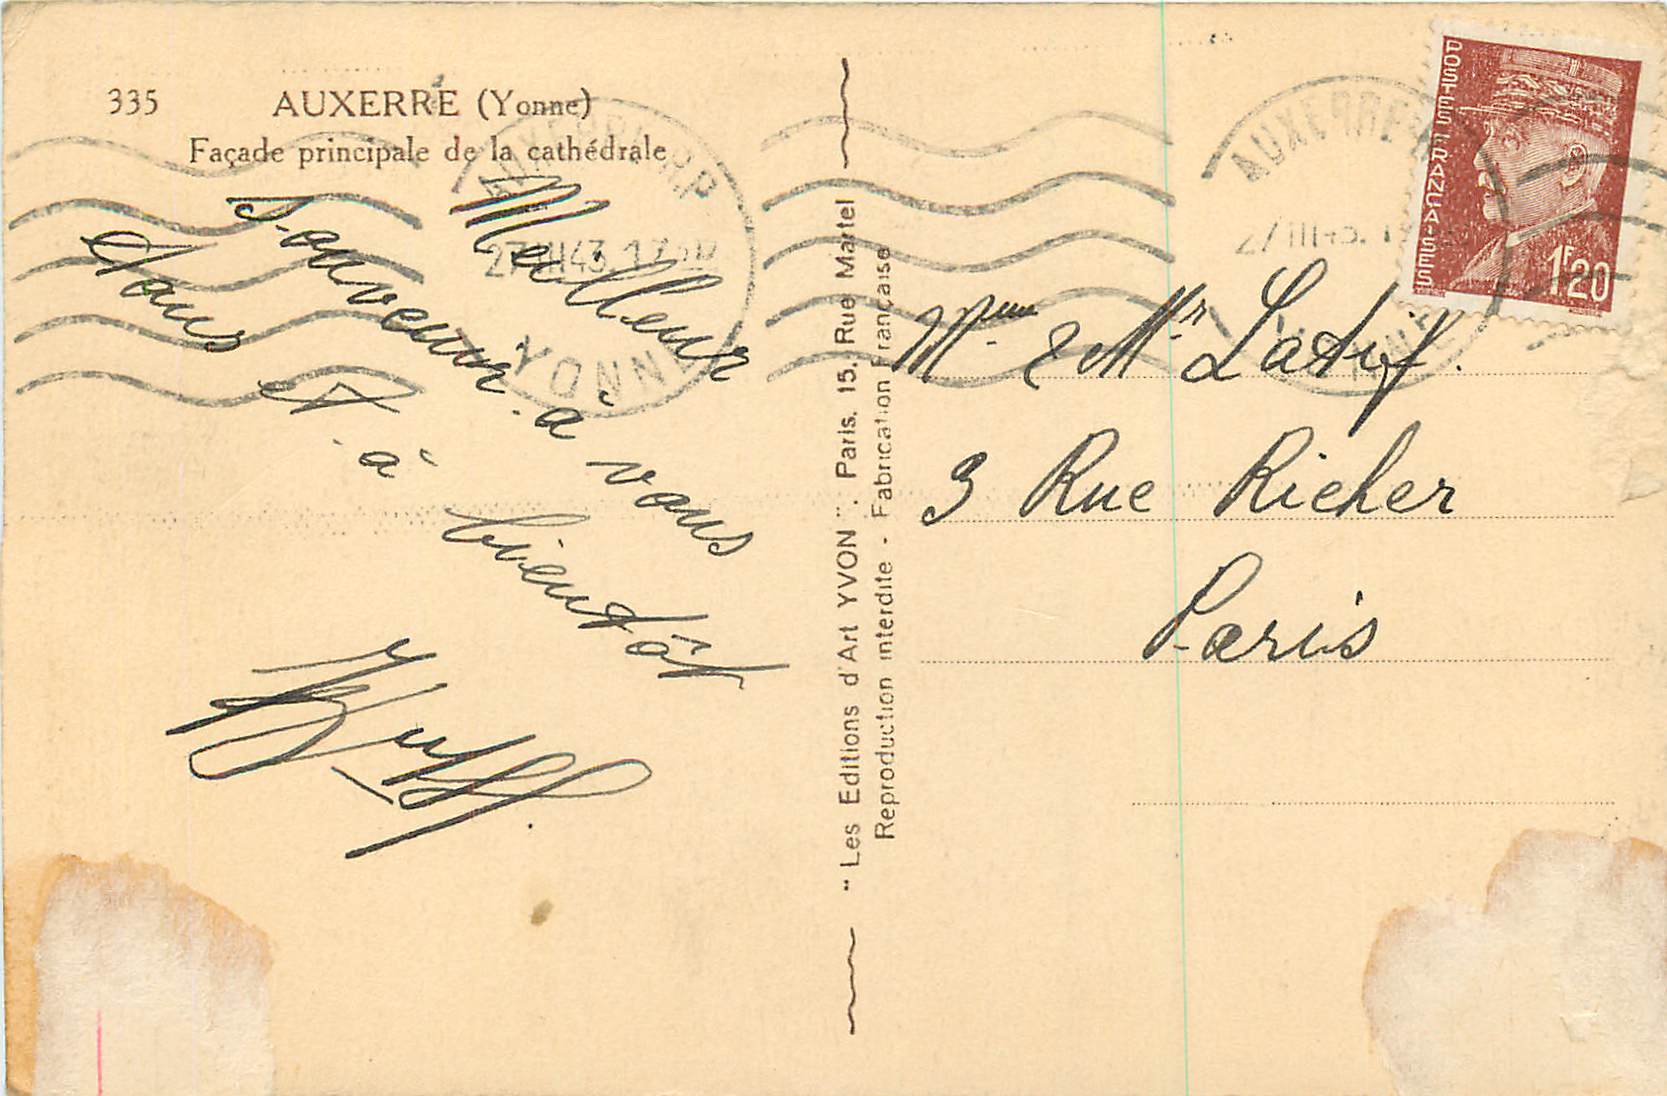 335 AUXERRE (Yonne)
Façade principale de la cathédrale
Meilleur
Souvenir à vous
tous et à
bientôt
"Les Editions d'Art YVON". Paris. 15, Rue Martel
Reproduction interdite - Fabrication Française
POSTES FRANÇAISES
1F20
AUXERRE R.P.
27 III 43
YONNE
AUXERRE
27 III 43
YONNE
Mme & Mr Latif.
3 Rue Richer
Paris